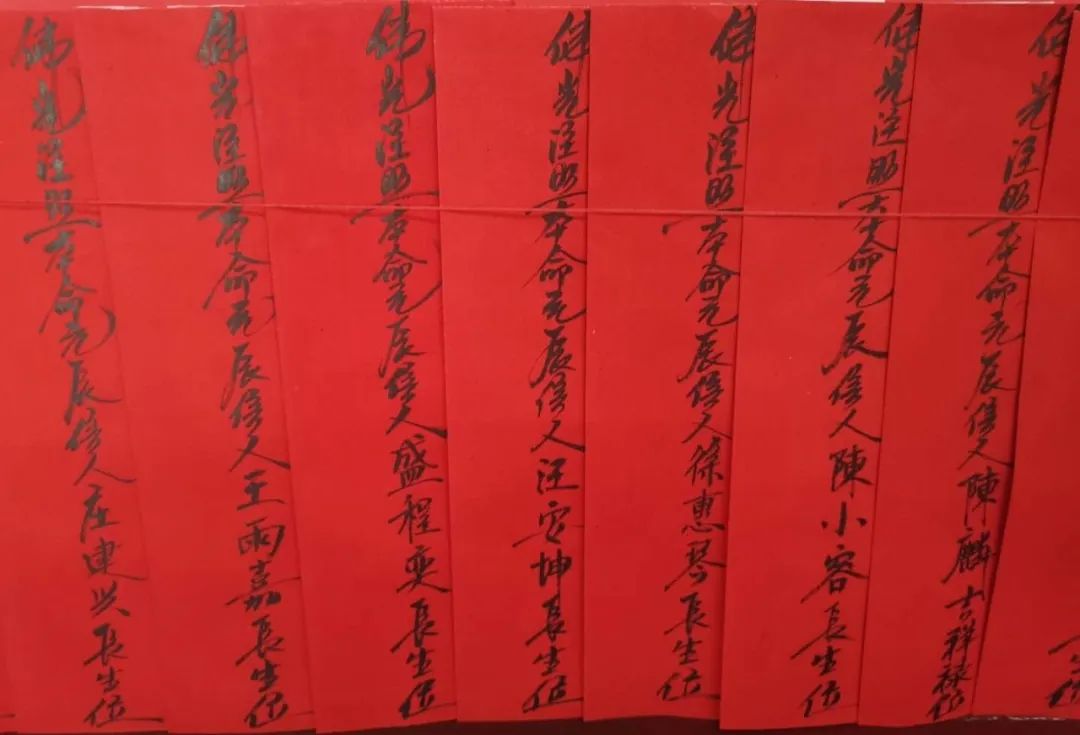 生位
佛光注照本命元辰信人陳麟吉祥禄位
佛光注照本命元辰信人陳小容長生位
佛光注照本命元辰信人徐惠琴長生位
佛光注照本命元辰信人汪安坤長生位
佛光注照本命元辰信人盛程奕長生位
佛光注照本命元辰信人王雨嘉長生位
佛光注照本命元辰信人庄兴長生位